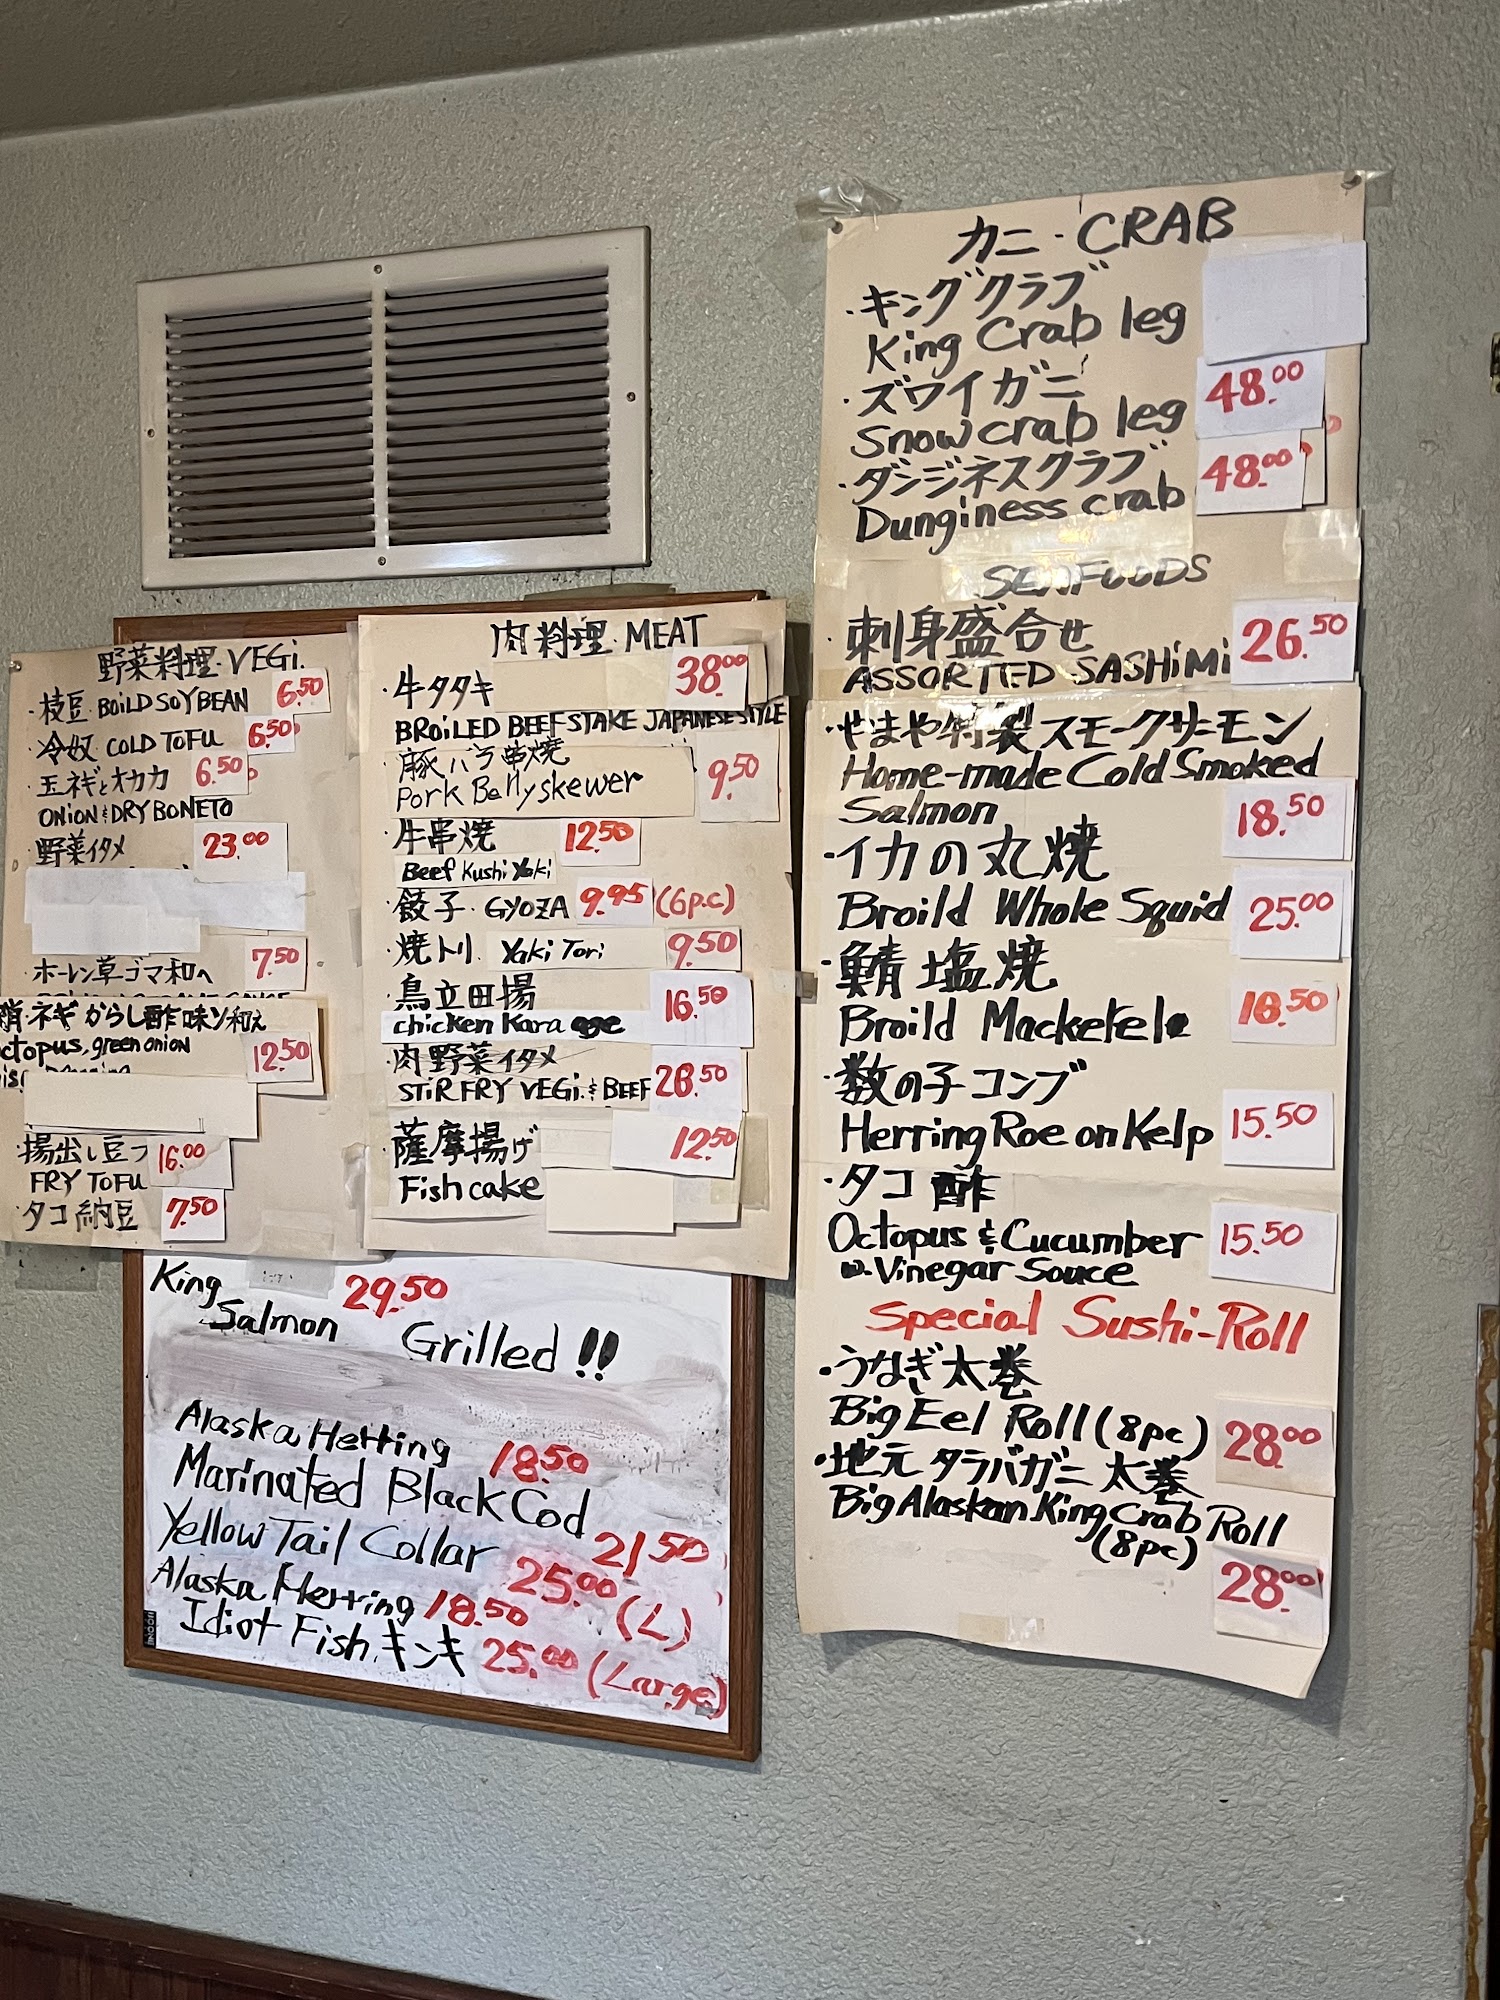 野菜料理・VEGi.
・枝豆 BOiLD SOYBEAN 6.50
・冷奴 COLD TOFU 6.50
・玉ネギとオカカ 6.50
ONiON & DRY BONETO
・野菜イタメ 23.00
・ホーレン草ゴマ和へ 7.50
ネギからし酢味ソ和え
ctopus, green onion 12.50
・揚出し豆フ 16.00
FRY TOFU
・タコ納豆 7.50
肉料理・MEAT
・牛タタキ 38.00
BROiLED BEEF STAKE JAPANESE STYLE
豚バラ串焼 9.50
Pork Belly skewer
・牛串焼 12.50
Beef Kushi Yaki
・餃子・GYOZA 9.95 (6p.c)
・焼トリ Yaki Tori 9.50
・鳥立田揚 16.50
chicken Kara age
・肉野菜イタメ
STiR FRY VEGi. & BEEF 28.50
・薩摩揚げ 12.50
Fish cake
King 29.50
Salmon Grilled!!
Alaska Herring 18.50
Marinated Black Cod 21.50
Yellow Tail Collar 25.00 (L)
Alaska Herring 18.50
Idiot Fish.キンキ 25.00 (Large)
カニ・CRAB
・キングクラブ
King Crab leg
・ズワイガニ 48.00
Snow crab leg
・ダンジネスクラブ 48.00
Dunginess crab
SEAFOODS
・刺身盛合せ 26.50
ASSORTED SASHiMi
・やまや特製スモークサーモン
Home-made Cold Smoked
Salmon 18.50
・イカの丸焼
Broild Whole Squid 25.00
・鯖塩焼
Broild Mackerel 16.50
・数の子コンブ
Herring Roe on Kelp 15.50
・タコ酢
Octopus & Cucumber 15.50
w. Vinegar Souce
Special Sushi-Roll
・うなぎ太巻
Big Eel Roll (8pc) 28.00
・地元タラバガニ太巻
Big Alaskan King Crab Roll
(8pc)
28.00